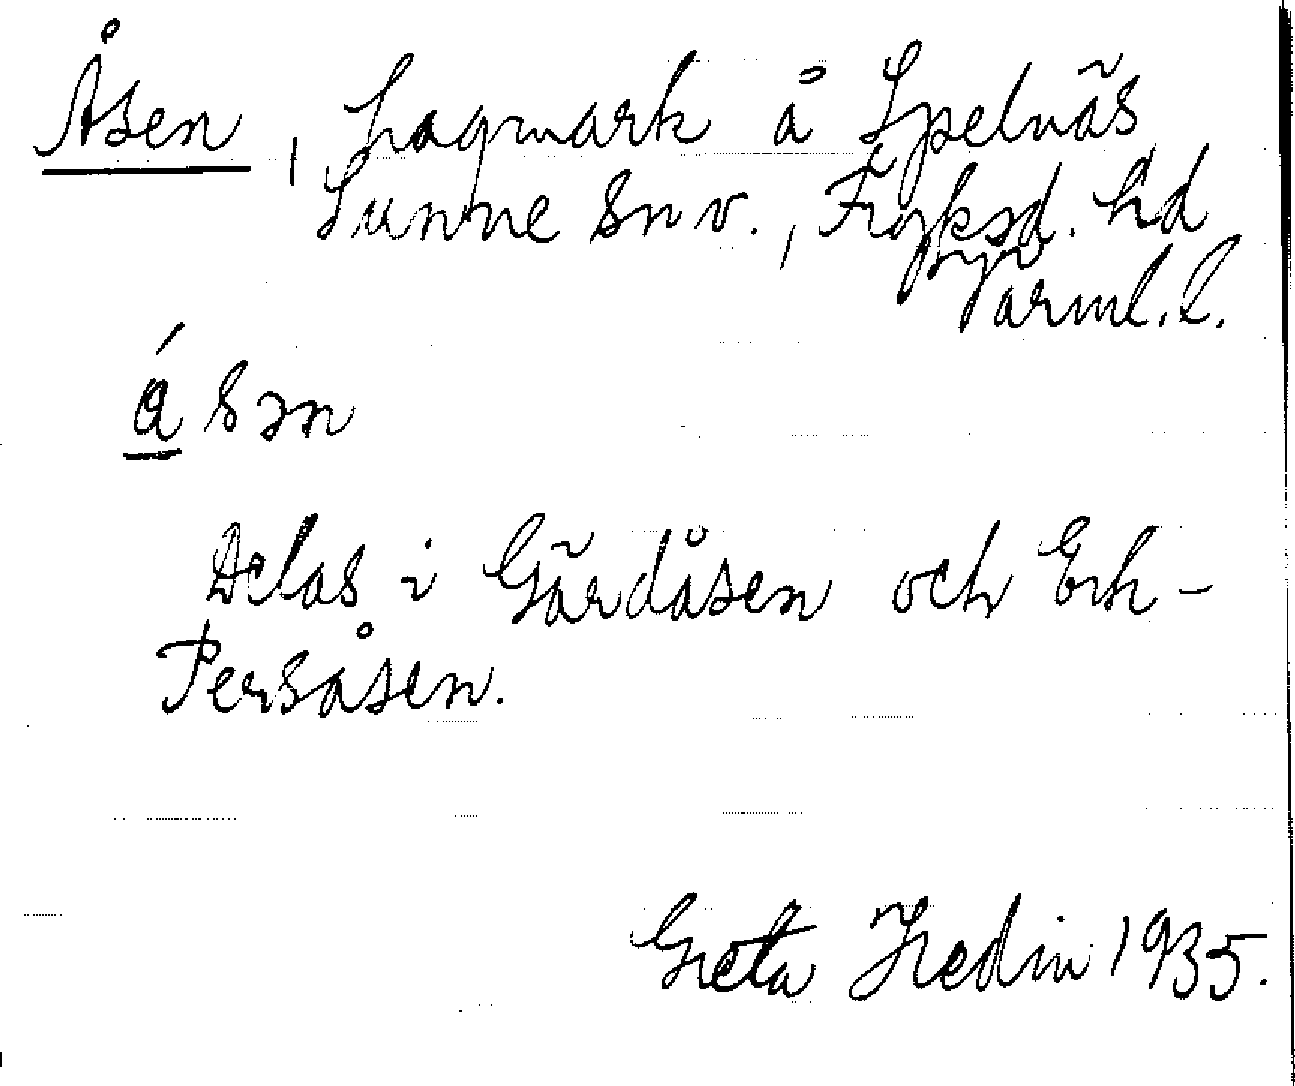 Åsen, Hagmark å Spelnäs
Sunne snv., Fryksd. hd
Värml. l.
á̲ sən
Delas i Gärdåsen och Erk-
Persåsen.
Greta Hedin 1935.